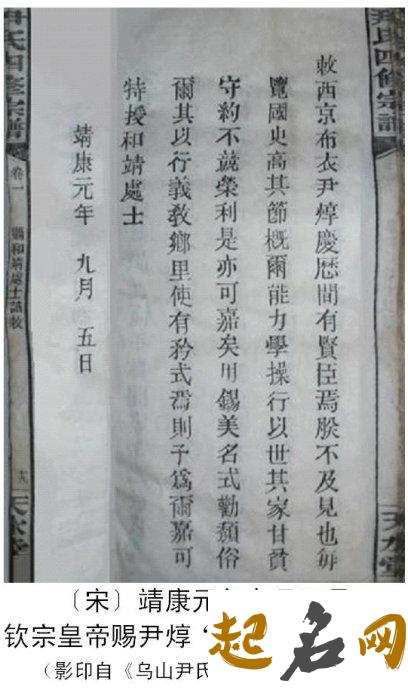 尹氏四修宗譜
天水堂
敕西京布衣尹焞慶厯間有賢臣焉朕不及見也每
覽國史高其節概爾能力學操行以世其家甘貧
守約不競榮利是亦可嘉矣用錫美名式勸頹俗
爾其以行義敎鄉里使有矜式焉則予爲爾嘉可
特授和靖處士
靖康元年 九月 五日
尹氏四修宗譜
卷一 賜和靖處士誥敕
十九
天水堂
〔宋〕靖康元
钦宗皇帝赐尹焞‘
（影印自《乌山尹氏
起名网